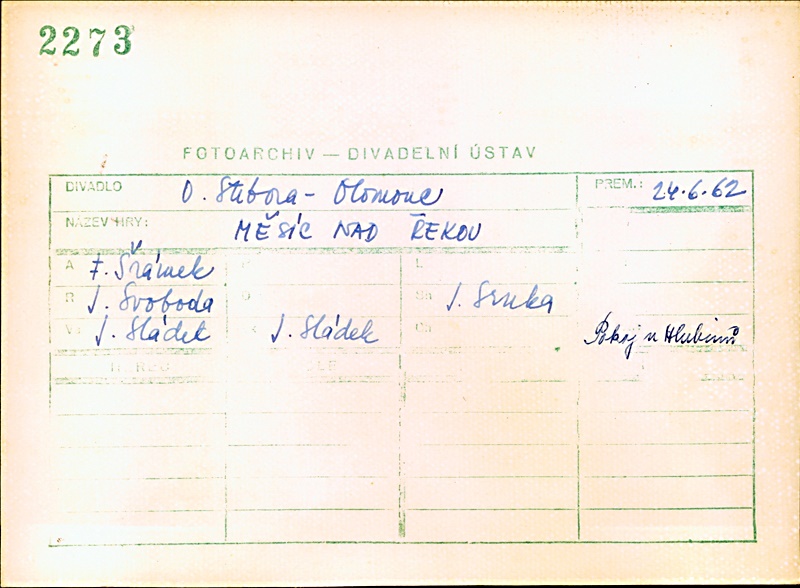 2273
FOTOARCHIV — DIVADELNÍ ÚSTAV
DIVADLO O. Stibora - Olomouc PREM.: 24.6.62
NÁZEV HRY: MĚSÍC NAD ŘEKOU
A F. Šrámek P L
R J. Svoboda O Sn J. Srnka
V J. Sládek K J. Sládek Ch Pokoj u Hlubinů